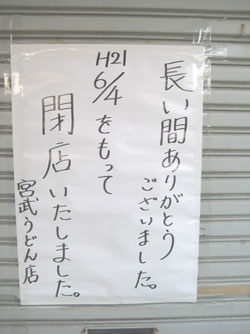 長い間ありがとう
ございました。
H21
6/4をもって
閉店いたしました。
宮武うどん店